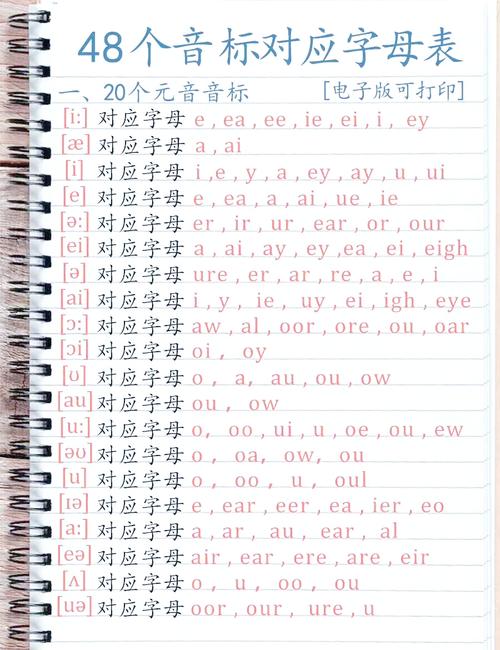 48个音标对应字母表
一、20个元音音标 [电子版可打印]
[i:] 对应字母 e , ea , ee , ie , ei , i , ey
[æ] 对应字母 a , ai
[i] 对应字母 i , e , y , a , ey , ay , u , ui
[e] 对应字母 e , ea , a , ai , ue , ie
[ə:] 对应字母 er , ir , ur , ear , or , our
[ei] 对应字母 a , ai , ay , ey , ea , ei , eigh
[ə] 对应字母 ure , er , ar , re , a , e , i
[ai] 对应字母 i , y , ie , uy , ei , igh , eye
[ɔ:] 对应字母 aw , al , oor , ore , ou , oar
[ɔi] 对应字母 oi , oy
[ʊ] 对应字母 o , a, au , ou , ow
[au] 对应字母 ou , ow
[u:] 对应字母 o, oo , ui , u , oe , ou , ew
[əʊ] 对应字母 o , oa, ow, ou
[u] 对应字母 o , oo , u , oul
[ɪə] 对应字母 e , ear , eer , ea , ier , eo
[a:] 对应字母 a , ar , au , ear , al
[eə] 对应字母 air , ear , ere , are , eir
[ʌ] 对应字母 o , u , oo , ou
[uə] 对应字母 oor , our , ure , u